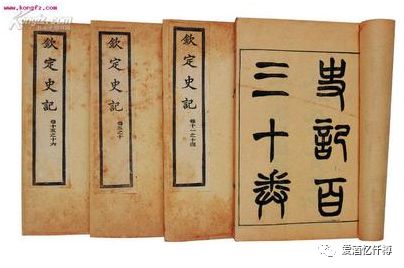 www.kongfz.com
史記百
三十卷
欽定史記
卷十一之十四
欽定史記
欽定史記
卷十五之十六
爱酒忆仟樽